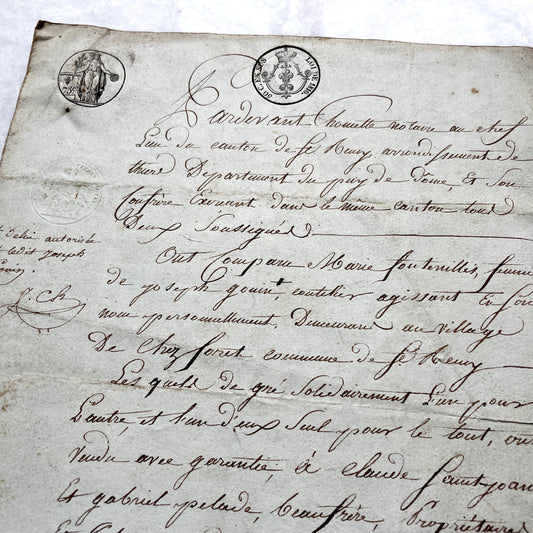 50 CENTES LOI DE 1816
Pardevant Chomette notaire au chef
Lieu du canton de St Remy, arrondissement de
thiers Département du puy de dôme, Et Son
Confrère Exerçant dans le même canton tous
Deux Soussignés
Ont Comparu Marie fontenilles, femme
de joseph gouin, coutelier agissant En son
nom personnellement, Demeurant au village
De chez foret commune de St Remy
Les quels de gré Solidairement L'un pour
L'autre, et L'un d'eux Seul pour le tout, ont
Vendu avec garentie, à claude Saint joani
Et gabriel pelade, beaufrère, Propriétaires
autorisée
ledit joseph